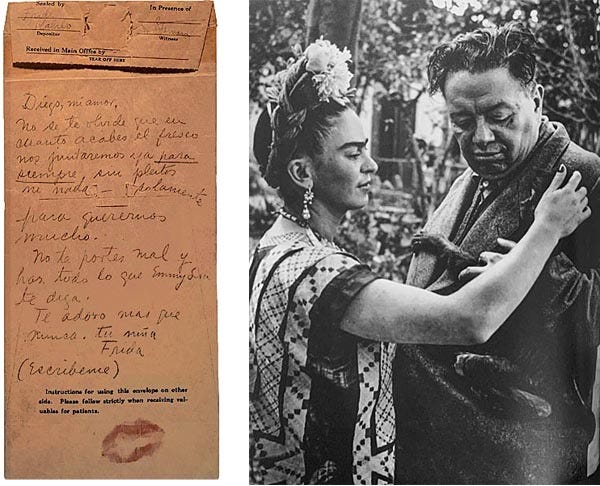 Sealed by
In Presence of
Depositor
Witness
Received in Main Office by
TEAR OFF HERE
Diego, mi amor,
No se te olvide que en
cuanto acabes el fresco
nos juntaremos ya para
siempre, sin pleitos
ni nada, – Solamente
para querernos
mucho.
No te portes mal y
haz todo lo que Emmy Lou
te diga.
Te adoro mas que
nunca. tu niña
Frida
(Escríbeme)
Instructions for using this envelope on other
side. Please follow strictly when receiving val-
uables for patients.